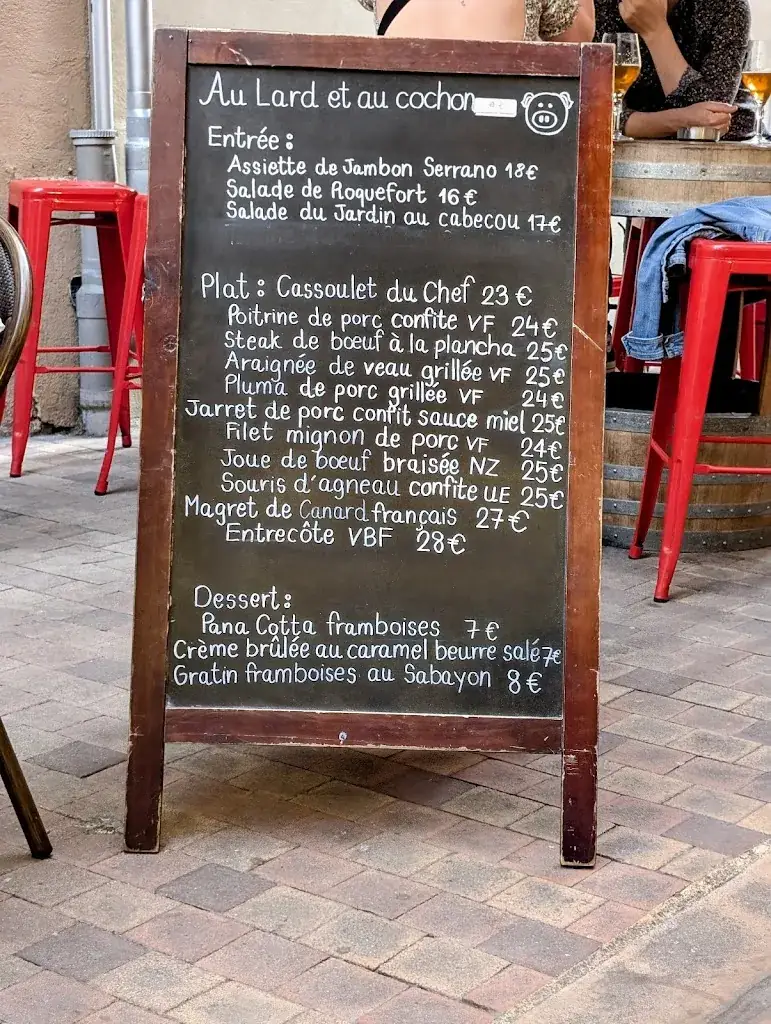 Au Lard et au cochon
Entrée :
Assiette de Jambon Serrano 18€
Salade de Roquefort 16€
Salade du Jardin au cabecou 17€
Plat : Cassoulet du Chef 23€
Poitrine de porc confite VF 24€
Steak de bœuf à la plancha 25€
Araignée de veau grillée VF 25€
Pluma de porc grillée VF 24€
Jarret de porc confit sauce miel 25€
Filet mignon de porc VF 24€
Joue de bœuf braisée NZ 25€
Souris d'agneau confite UE 25€
Magret de Canard français 27€
Entrecôte VBF 28€
Dessert :
Pana Cotta framboises 7€
Crème brûlée au caramel beurre salé 7€
Gratin framboises au Sabayon 8€